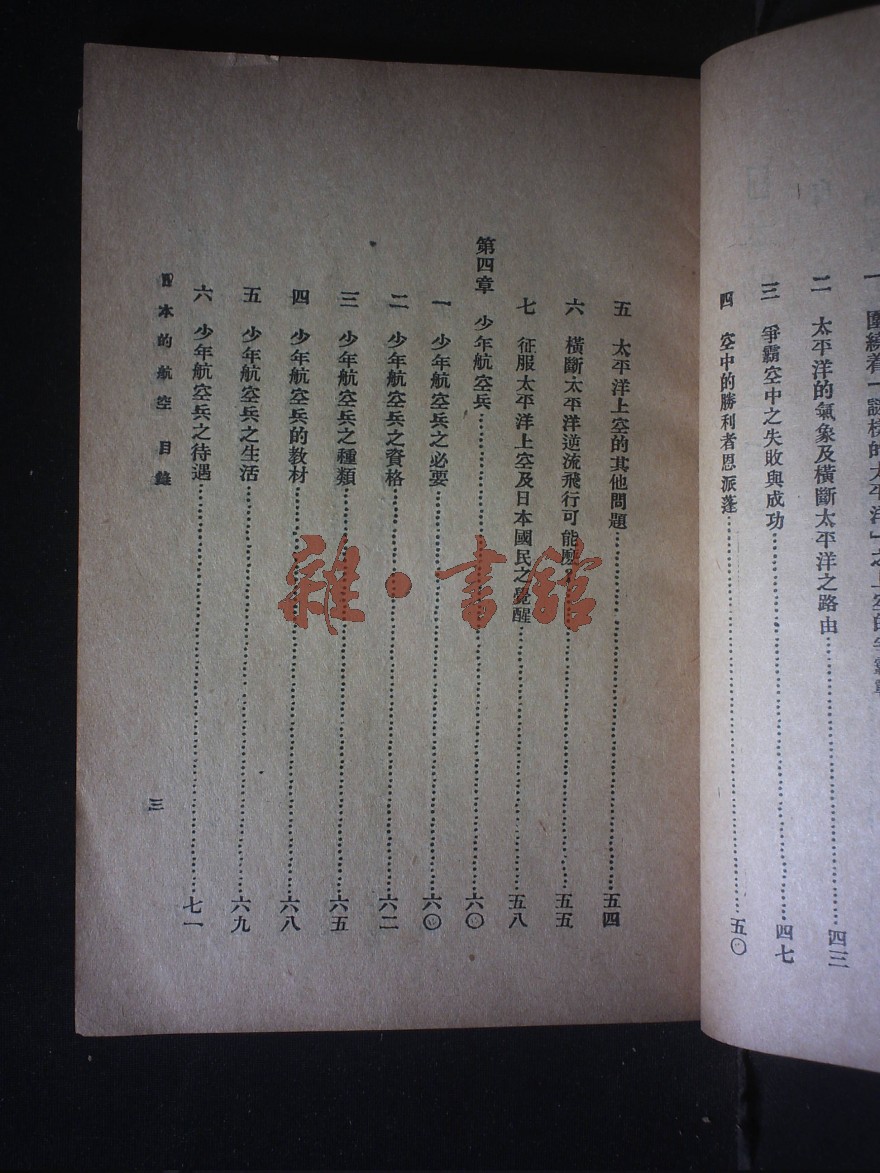 一 圍繞着「謎樣的太平洋」之上空的爭霸戰
二 太平洋的氣象及橫斷太平洋之路由……四三
三 爭霸空中之失敗與成功……四七
四 空中的勝利者恩派蓬……五〇
五 太平洋上空的其他問題……五四
六 橫斷太平洋逆流飛行可能麼？……五五
七 征服太平洋上空及日本國民之覺醒……五八
第四章 少年航空兵……六〇
一 少年航空兵之必要……六〇
二 少年航空兵之資格……六二
三 少年航空兵之種類……六五
四 少年航空兵的教材……六八
五 少年航空兵之生活……六九
六 少年航空兵之待遇……七一
日本的航空 目錄
三
雜·書館